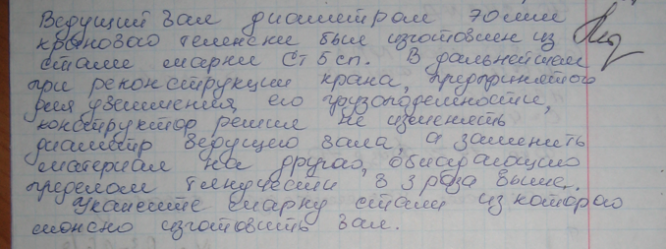 Ведущий вал диаметром 70 мм
кранового тележки был изготовлен из
стали марки Ст 5 сп. В дальнейшем
при реконструкции крана, предпринятого
для увеличения его грузоподъемности,
конструктор решил не изменять
диаметр ведущего вала, а заменить
материал на другой, обладающий
пределом текучести в 3 раза выше.
Укажите марку стали из которой
можно изготовить вал.